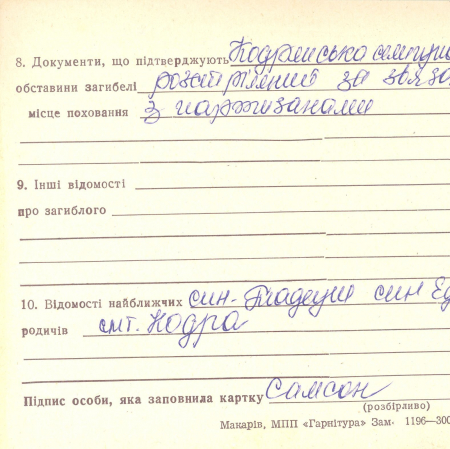 8. Документи, що підтверджують Кодрянська
обставини загибелі розстріляний за звяз
місце поховання з партизанами
9. Інші відомості
про загиблого
10. Відомості найближчих син - Тадеуш син Ед
родичів смт. Кодра
Підпис особи, яка заповнила картку Самсон
(розбірливо)
Макарів, МПП «Гарнітура» Зам. 1196—300